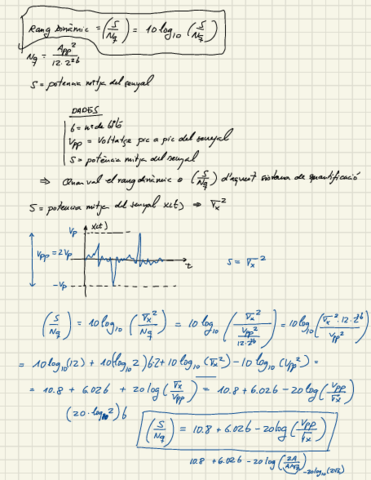 Rang dinàmic = (S/Nq) = 10 log10 (S/Nq)
Nq = App² / 12·2^2b
S = potencia mitja del senyal
DADES
b = nº de bits
Vpp = Voltatge pic a pic del senyal
S = potència mitja del senyal
⇒ Quan val el rang dinàmic o (S/Nq) d'aquest sistema de quantificació
S = potencia mitja del senyal x(t) ⇒ σx²
Vp x(t)
Vpp = 2Vp t S = σx²
-Vp
(S/Nq) = 10 log10 (σx²/Nq) = 10 log10 (σx² / (Vpp²/12·2^2b)) = 10 log10 (σx²·12·2^2b / Vpp²)
= 10 log10 (12) + 10 log10(2) b2 + 10 log10 (σx²) - 10 log10 (Vpp²) =
= 10.8 + 6.02b + 20 log (σx/Vpp) = 10.8 + 6.02b - 20 log (Vpp/σx)
(20·log10 2) b
(S/Nq) = 10.8 + 6.02b - 20 log (Vpp/σx)
10.8 + 6.02b - 20 log